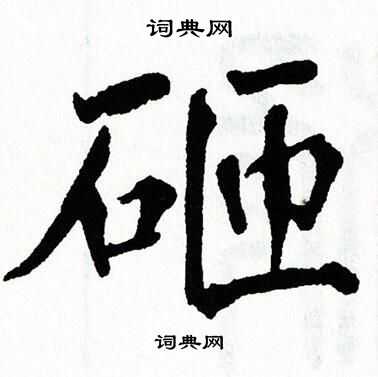 词典网
砸
词典网